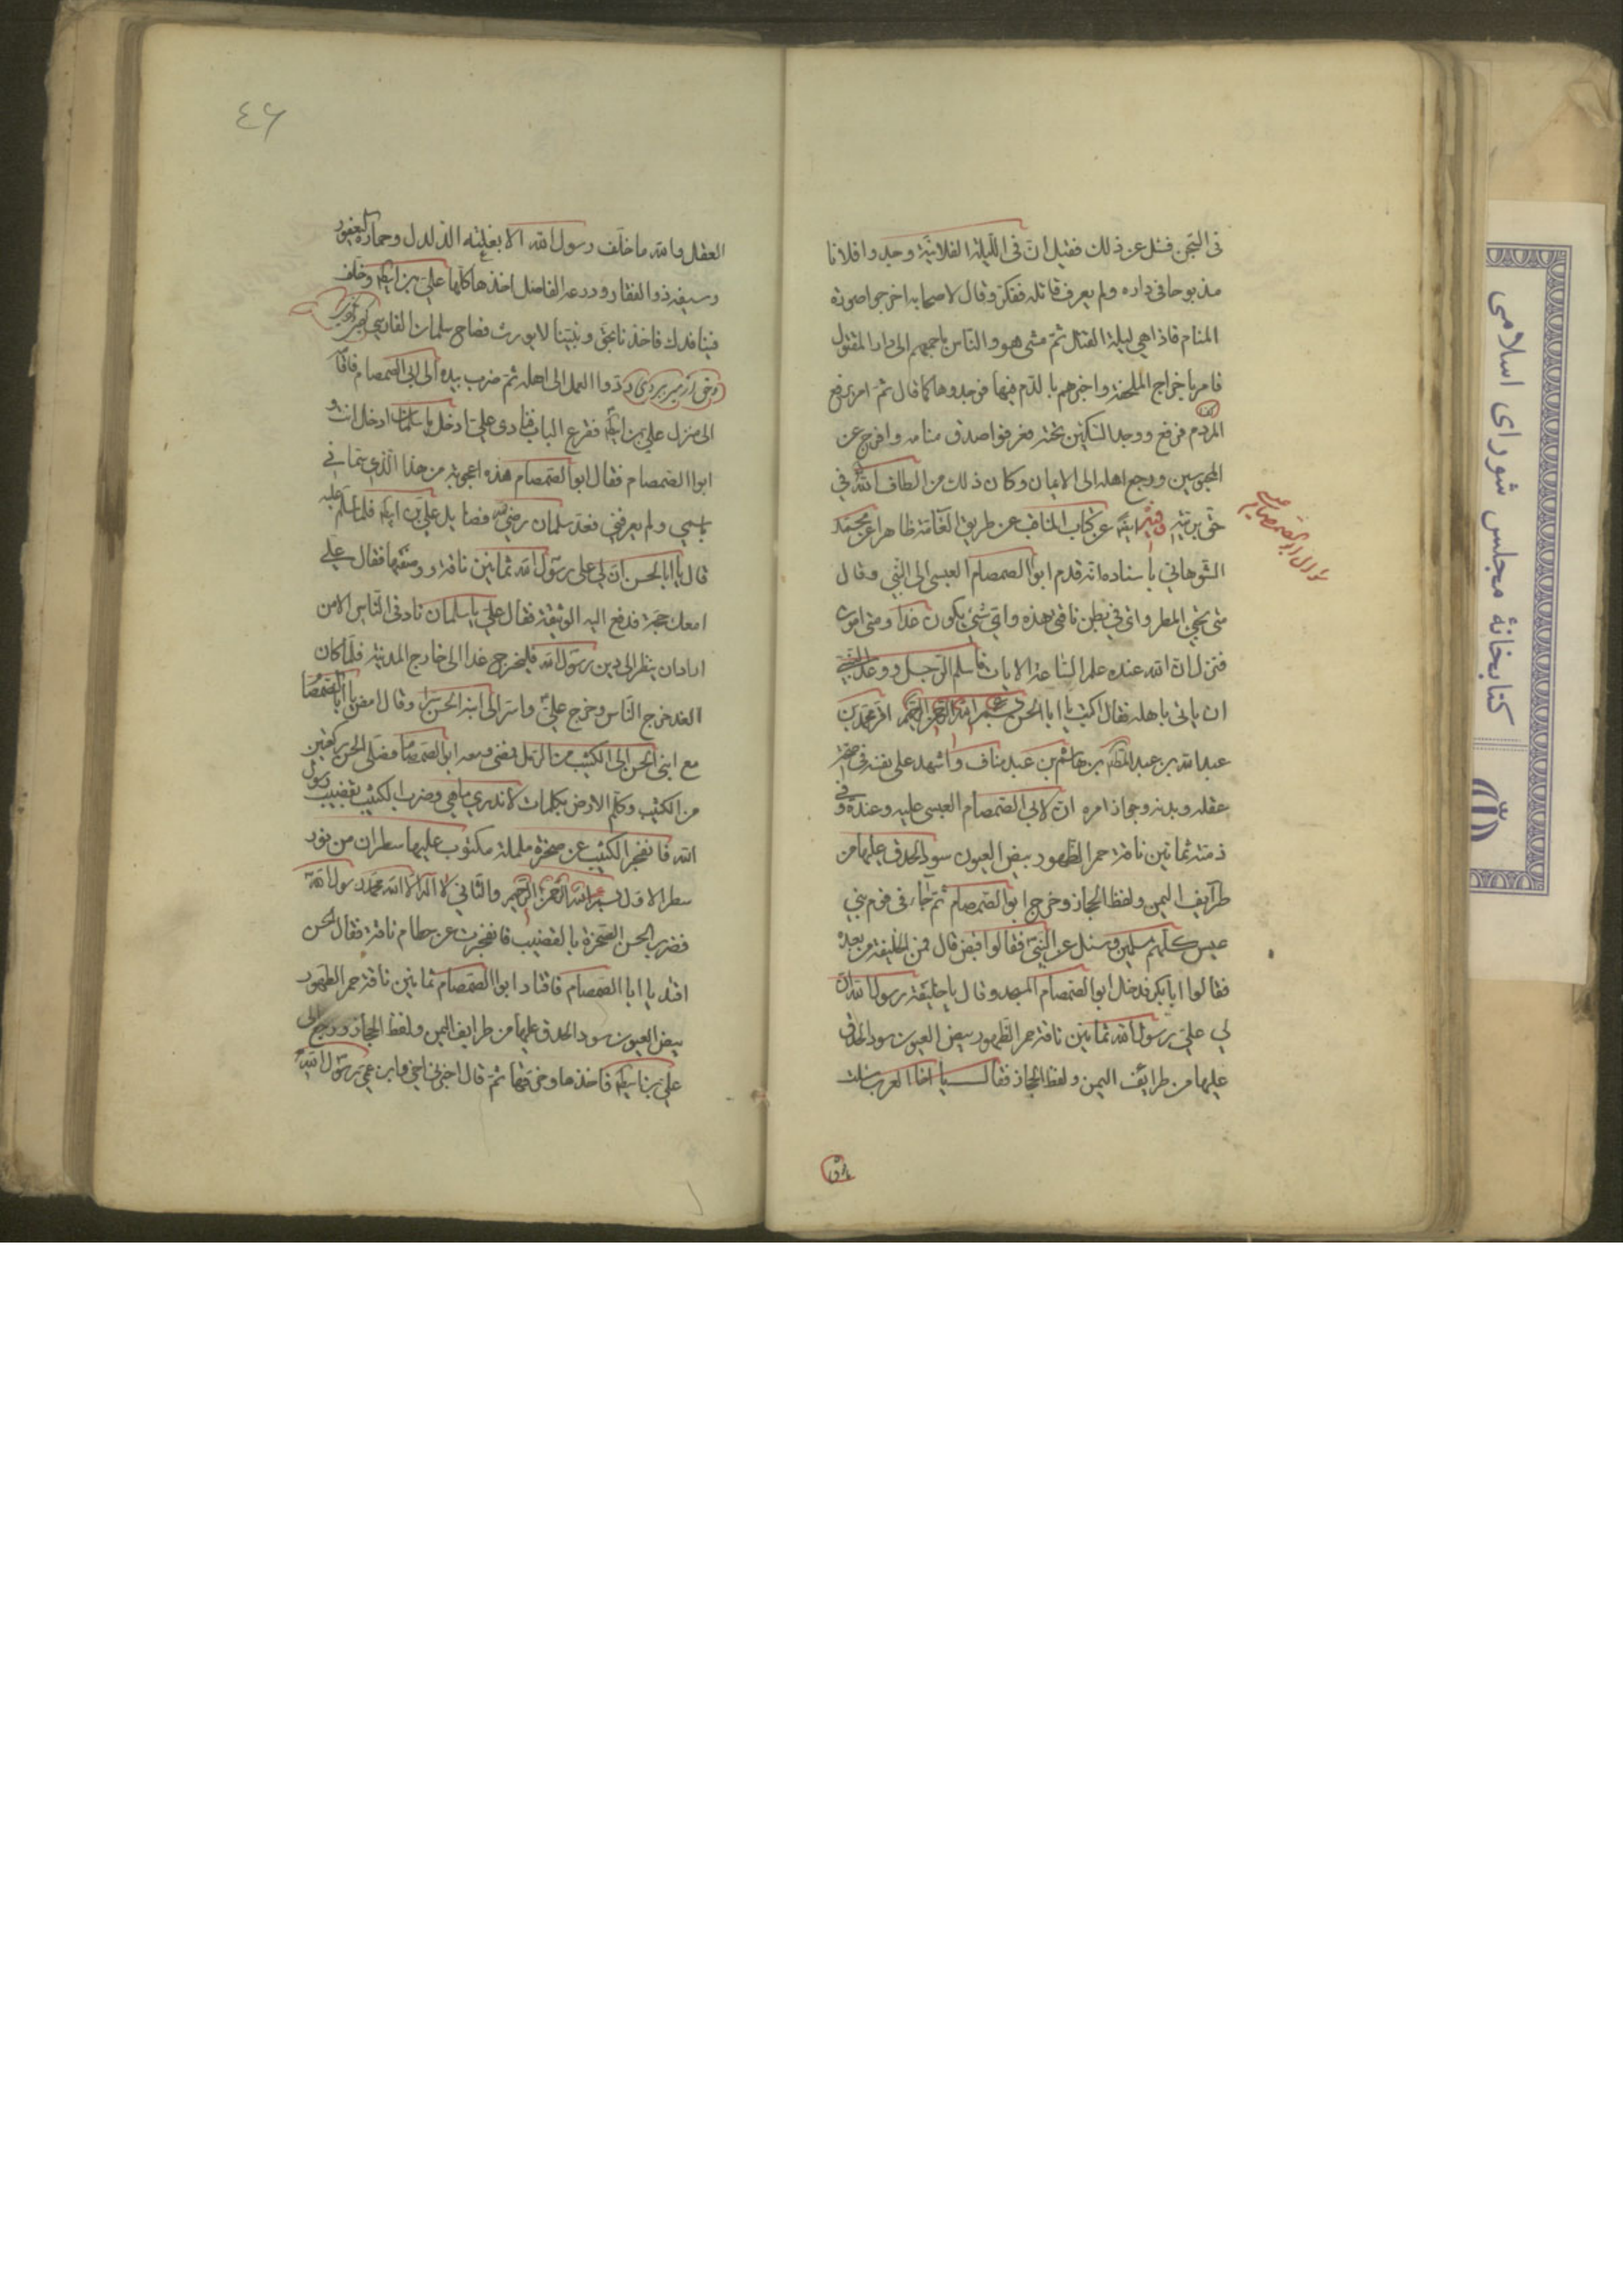 في السجن فسئل عن ذلك فقيل ان في الليلة الفلانية وجدوا فلانا
مذبوحا في داره ولم يعرف قاتله ففكر وقال لاصحابه اخرجوا صورة
المنام فاذا هي ليلة القتال ثم مشى هو والناس باجمعهم الى دار المقتول
فامر باخراج الملحفة واخبرهم بالدم فيها فوجدوها كما قال ثم امر برفع
المردم فرفع ووجد السكين تحته فعرفوا صدق منامه وافرج عن
المحبوسين ورجع اهله الى الايمان وكان ذلك من الطاف الله في
حق بريته وفيه ايضا عن كتاب المناقب عن طريق العامة ظاهرا عن محمد
الشوهاني باسناده انه قدم ابوالصمصام العبسى الى النبي وقال
متى يجئ المطر واي شئ في بطن ناقتي هذه واي شئ يكون غدا ومتى اموت
فنزل ان الله عنده علم الساعة الايات فاسلم الرجل ووعد النبي
ان ياتي باهله فقال اكتب يا ابا الحسن بسم الله الرحمن الرحيم اقر محمد بن
عبدالله بن عبدالمطلب بن هاشم بن عبد مناف واشهد على نفسه في صحة
عقله وبدنه وجواز امره ان لابي الصمصام العبسى عليه وعنده وفي
ذمته ثمانين ناقة حمر الظهور بيض العيون سود الحدق عليها من
طرايف اليمن ولفظ الحجاز وخرج ابوالصمصام ثم جاء في قوم بني
عبس كلهم مسلمين وسئل عن النبي فقالوا قبض قال فمن الخليفة من بعده
فقالوا ابابكر فدخل ابوالصمصام المسجد وقال يا خليفة رسول الله ان
لي على رسول الله ثمانين ناقة حمر الظهور بيض العيون سود الحدق
عليها من طرائف اليمن ولفظ الحجاز فقال يا اخا العرب سئلت
سؤال ابوالصمصام
٤۶
العقل والله ما خلف رسول الله الا بغلته الدلدل وحماره اليعفور
وسيفه ذو الفقار ودرعه الفاضل اخذها كلها علي بن ابيطالب وخلف
فينا فدك فاخذنا بحق ونبينا لايورث فصاح سلمان الفارسي كردى ونكردى
وحق از مير ببردى ردوا العمل الى اهله ثم ضرب بيده الى ابي الصمصام فاقامه
الى منزل علي بن ابيطالب فقرع الباب فنادى علي ادخل يا سلمان ادخل انت و
ابوا الصمصام فقال ابوالصمصام هذه اعجوبة من هذا الذي سماني
باسمي ولم يعرفني فعد سلمان رضي فضايل علي بن ابيطالب فلما سلم عليه
قال يا ابا الحسن ان لي على رسول الله ثمانين ناقة ووصفها فقال علي
امعك حجة فدفع اليه الوثيقة فقال علي يا سلمان ناد في الناس الا من
اراد ان ينظر الى دين رسول الله فليخرج غدا الى خارج المدينة فلما كان
الغد خرج الناس وخرج علي واسر الى ابنه الحسن سرا وقال امض يا ابا الصمصام
مع ابني الحسن الى الكثيب من الرمل فمضى ومعه ابوالصمصام فصلى الحسن ركعتين
من الكثيب وكلم الارض بكلمات لا ندري ما هي وضرب الكثيب بقضيب رسول
الله فانفجر الكثيب عن صخرة ململمة مكتوب عليها سطران من نور
سطر الاول بسم الله الرحمن الرحيم والثاني لا اله الا الله محمد رسول الله
فضرب الحسن الصخرة بالقضيب فانفجرت عن خطام ناقة فقال الحسن
اقتد يا ابا الصمصام فاقتاد ابوا الصمصام ثمانين ناقة حمر الظهور
بيض العيون سود الحدق عليها من طرايف اليمن ولفظ الحجاز ورجع الى
علي بن ابيطالب فاخذها وخرقها ثم قال اخبرني اخي وابن عمي رسول الله
كتابخانهٔ مجلس شورای اسلامی